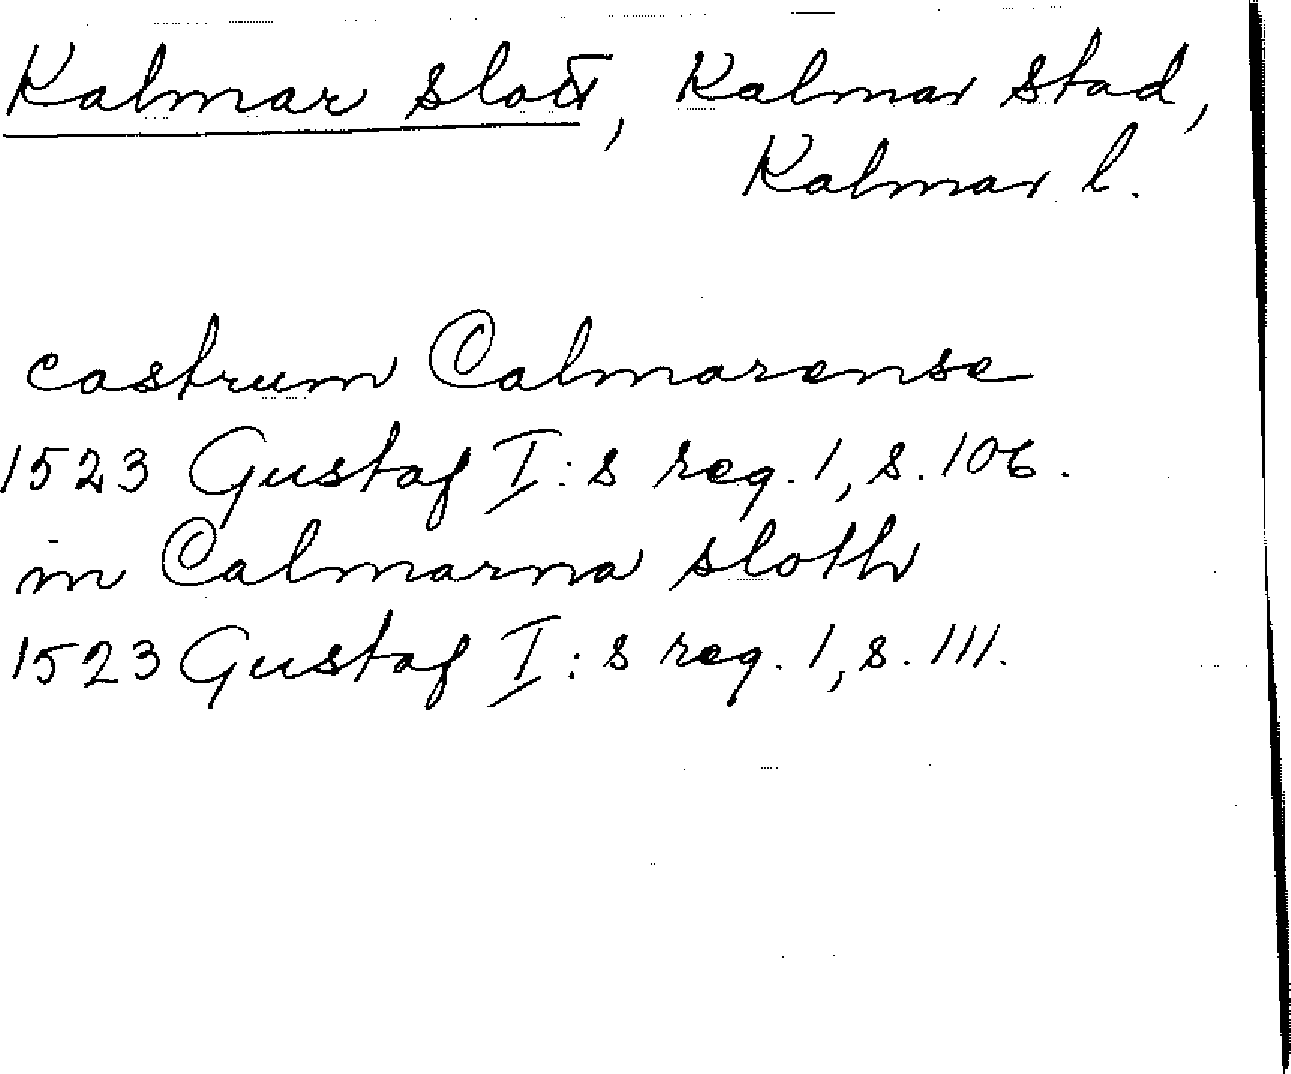 Kalmar slott, Kalmar stad,
Kalmar l.
castrum Calmarense
1523 Gustaf I:s reg. 1, s. 106.
in Calmarna sloth
1523 Gustaf I:s reg. 1, s. 111.